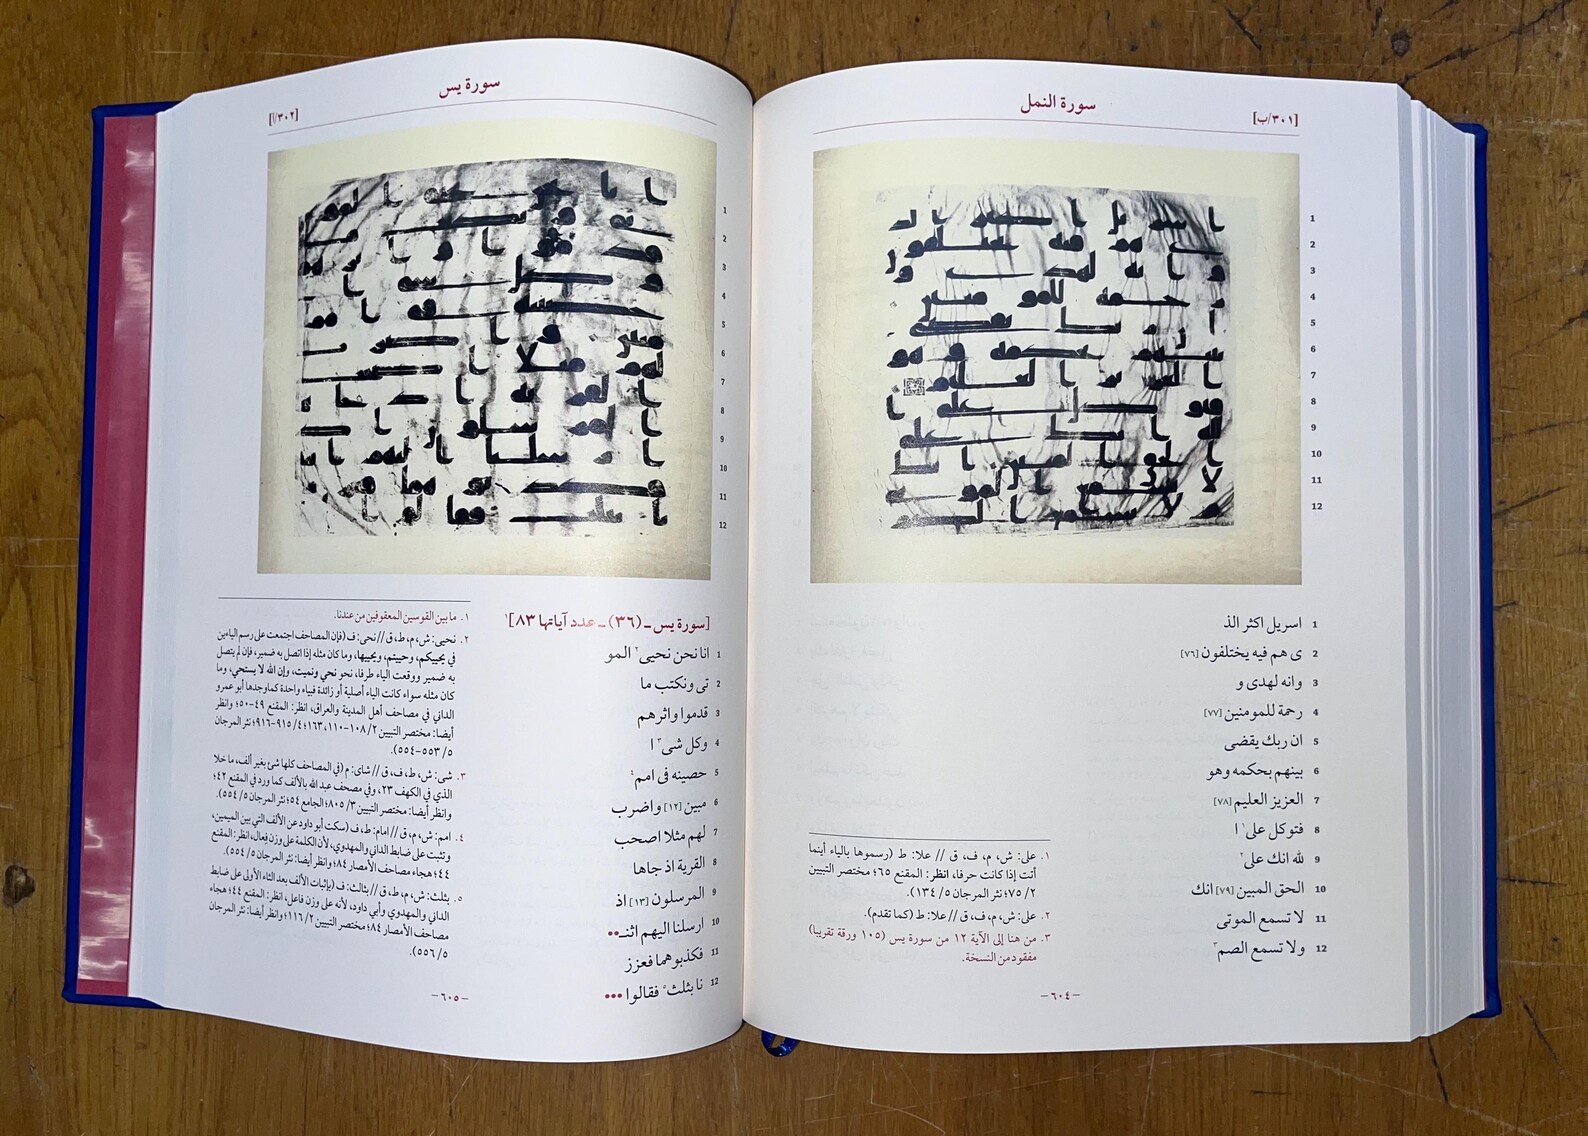 سورة النمل
[٣٠١/ب]
1 اسريل اكثر الذ
2 ى هم فيه يختلفون [٧٦]
3 وانه لهدى و
4 رحمة للمومنين [٧٧]
5 ان ربك يقضى
6 بينهم بحكمه وهو
7 العزيز العليم [٧٨]
8 فتوكل على١ ا
9 لله انك على٢
10 الحق المبين [٧٩] انك
11 لا تسمع الموتى
12 ولا تسمع الصم٣
١. على: ش، م، ف، ق // علا: ط (رسموها بالياء أينما
أتت إذا كانت حرفا، انظر: المقنع ٦٥؛ مختصر التبيين
٢/ ٧٥؛ نثر المرجان ٥/ ١٣٤).
٢. على: ش، م، ف، ق // علا: ط (كما تقدم).
٣. من هنا إلى الآية ١٢ من سورة يس (١٠٥ ورقة تقريبا)
مفقود من النسخة.
–٦٠٤–
سورة يس
[٣٠٢/أ]
[سورة يس ـ (٣٦) ـ عدد آياتها ٨٣]١
1 انا نحن نحيى٢ المو
2 تى ونكتب ما
3 قدموا واثرهم
4 وكل شى٣ ا
5 حصينه فى امم٤
6 مبين [١٢] واضرب
7 لهم مثلا اصحب
8 القرية اذ جاها
9 المرسلون [١٣] اذ
10 ارسلنا اليهم اثنـ••
11 فكذبوهما فعزز
12 نا بثلث٥ فقالوا •••
١. ما بين القوسين المعقوفين من عندنا.
٢. نحيى: ش، م، ط، ق // نحى: ف (فإن المصاحف اجتمعت على رسم الياءين
في يحييكم، وحييتم، ويحييها، وما كان مثله إذا اتصل به ضمير، فإن لم يتصل
به ضمير ووقعت الياء طرفا، نحو نحي ونميت، وإن الله لا يستحي، وما
كان مثله سواء كانت الياء أصلية أو زائدة فبياء واحدة كما وجدها أبو عمرو
الداني في مصاحف أهل المدينة والعراق، انظر: المقنع ٤٩-٥٠؛ وانظر
أيضا: مختصر التبيين ٢/ ١٠٨-١١٠، ١٦٣؛ ٤/ ٩١٥-٩١٦؛ نثر المرجان
٥/ ٥٥٣-٥٥٤).
٣. شى: ش، ط، ف، ق // شاى: م (في المصاحف كلها شئ بغير ألف، ما خلا
الذي في الكهف ٢٣، وفي مصحف عبد الله بالألف كما ورد في المقنع ٤٢؛
وانظر أيضا: مختصر التبيين ٣/ ٨٠٥؛ الجامع ٥٤؛ نثر المرجان ٥/ ٥٥٤).
٤. امم: ش، م، ق // امام: ط، ف (سكت أبو داود عن الألف التي بين الميمين،
وتثبت على ضابط الداني والمهدوي، لأن الكلمة على وزن فِعال، انظر: المقنع
٤٤؛ هجاء مصاحف الأمصار ٨٤؛ وانظر أيضا: نثر المرجان ٥/ ٥٥٤).
٥. بثلث: ش، م، ط، ق // بثالث: ف (بإثبات الألف بعد الثاء الأولى على ضابط
الداني والمهدوي وأبي داود، لأنه على وزن فاعل، انظر: المقنع ٤٤؛ هجاء
مصاحف الأمصار ٨٤؛ وانظر أيضا: مختصر التبيين ٢/ ١١٦؛ نثر المرجان
٥/ ٥٥٦).
–٦٠٥–